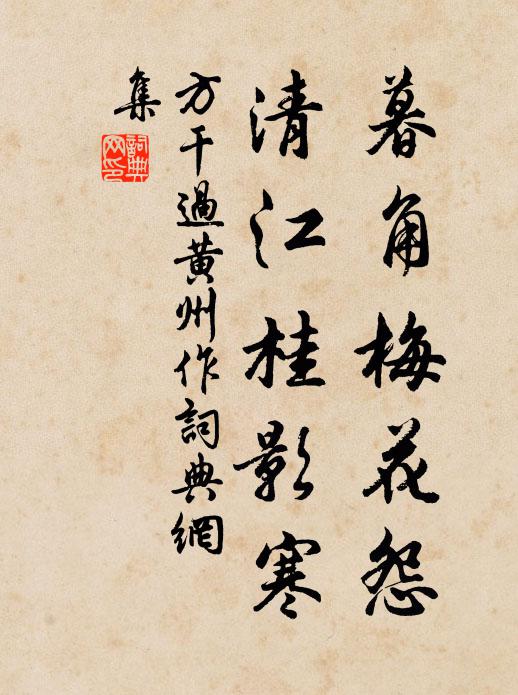 暮角梅花怨
清江桂影寒
方干過黃州作詞典網
集
詞典
网印